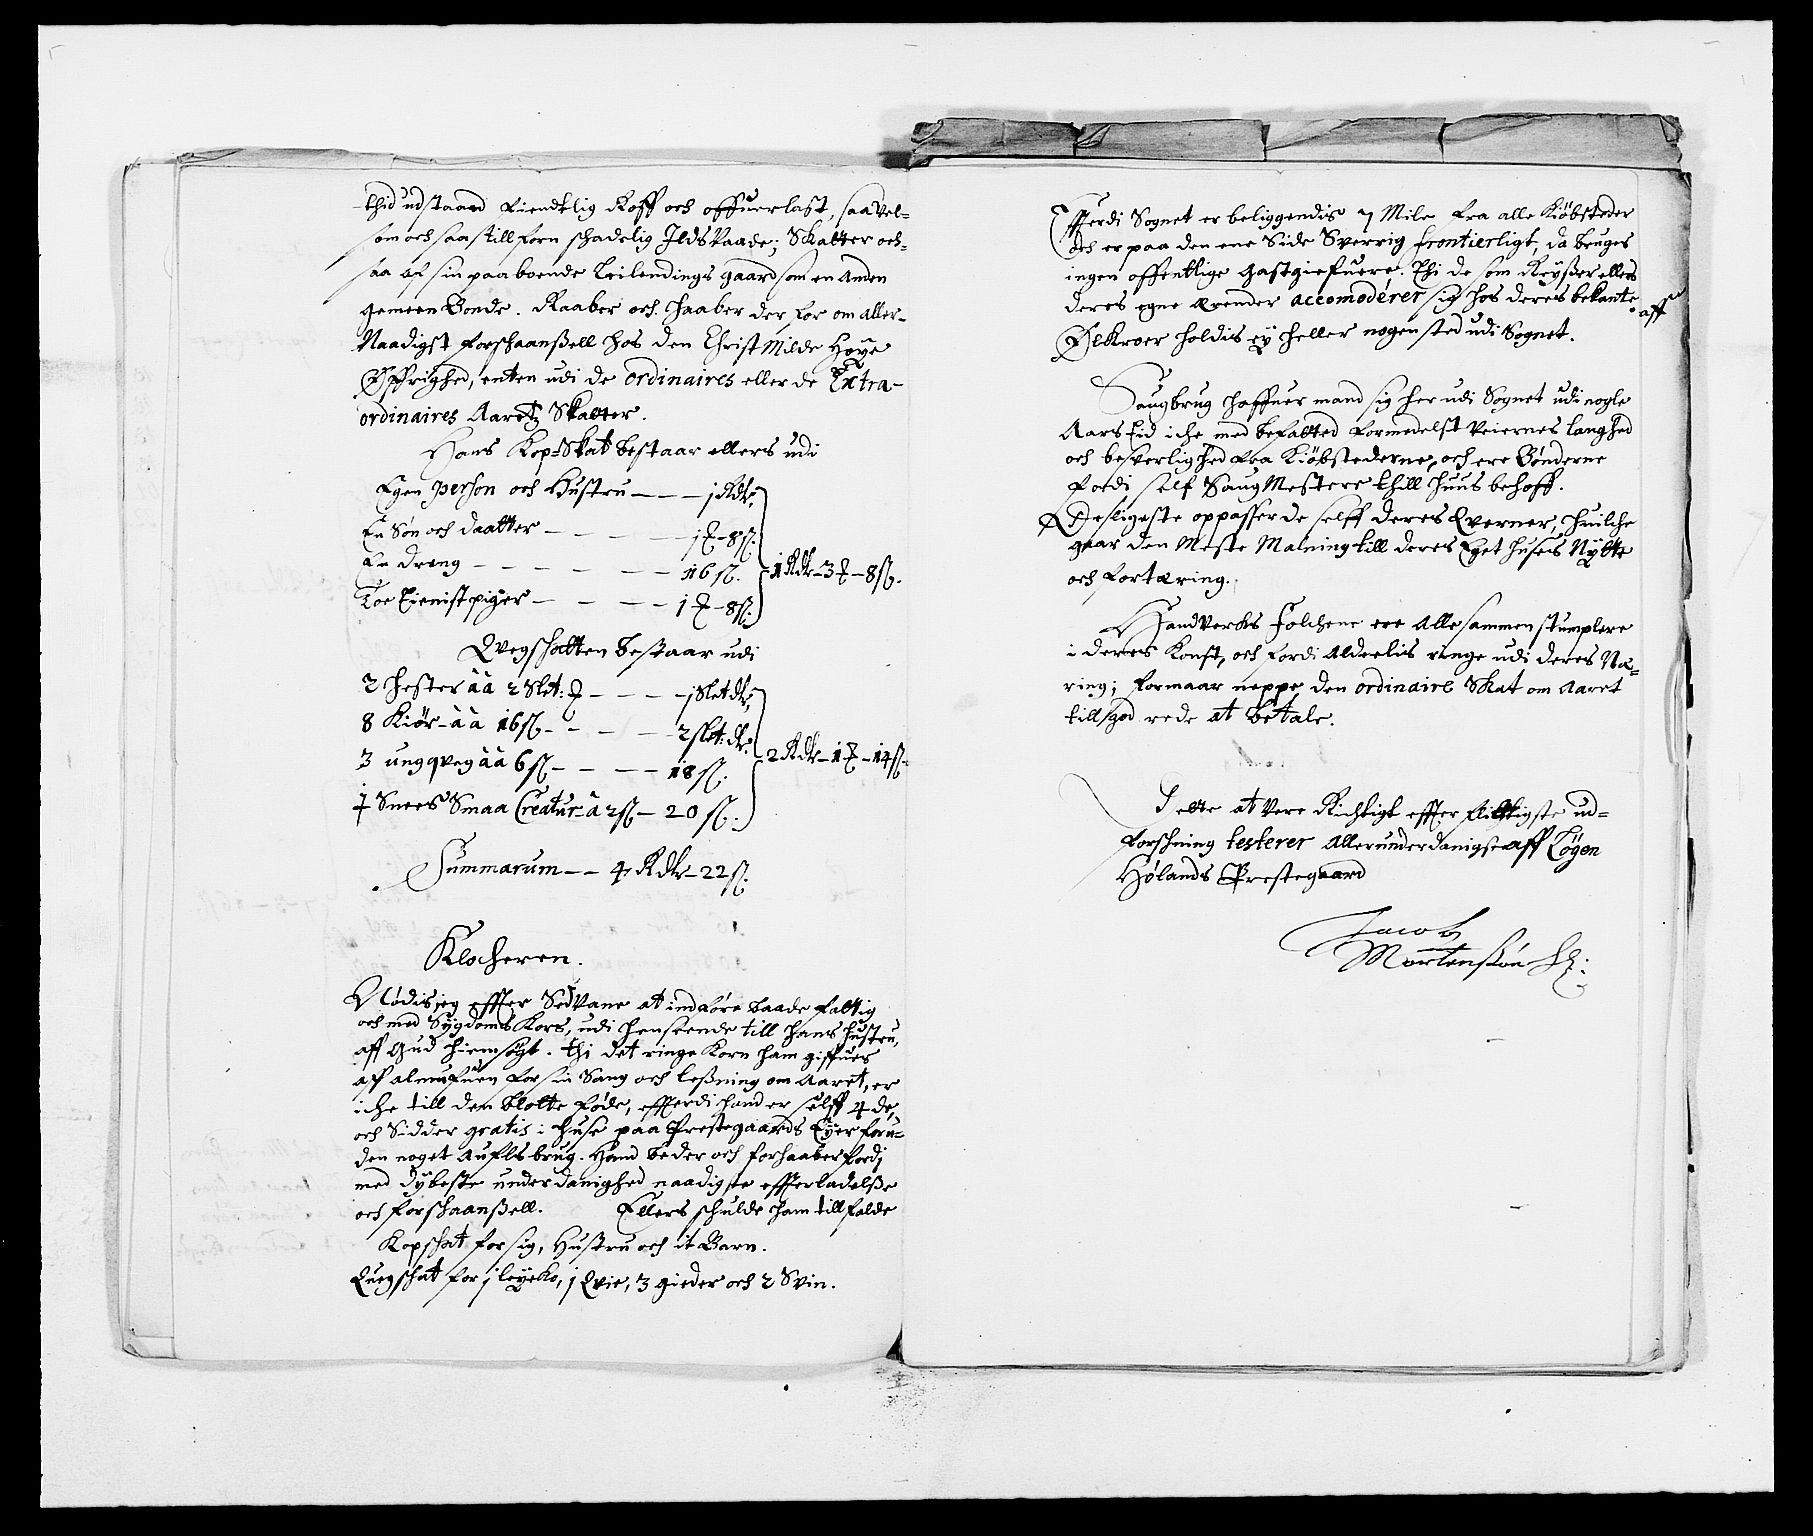 thid udstaaed fiendtlig Roff och offuerlast, saa vel-
som och saa till forn schadelig Ilds Vaade; Skatter och-
saa af sin paaboende Leilendings gaard som en Anden
gemeen Bonde. Raaber och haaber der for om aller-
Naadigst forschaanßell hos den Christ Milde Høye
Øffrighed, enten udi de ordinaires eller de Extra-
ordinaires Aaretz Skatter.
Hans Kop-Skat bestaar ellers udi
Egen person och Hustru — — — j Rdlr.
En Søn och daatter — — — — j ƶ - 8 ß.
En dreng — — — — — — 16 ß. 1 Rdlr - 3 ƶ - 8 ß.
Toe Tienistpiger — — — — 1 ƶ - 8 ß.
Qvegschatten bestaar udi
2 hester àà 2 Slet: ƶ — — — — j Slet dlr.
8 Kiør - àà 16 ß — — — — 2 slet: dlr.
3 ungqveg àà 6 ß — — — — 18 ß. 2 Rdlr - 1 ƶ - 14 ß
Snees Smaa Creatur - à 2 ß — 20 ß.
Summarum — — 4 Rdlr - 22 ß.
Klocheren.
Nødis jeg effter Sedvane at indføre baade fattig
och med Sygdoms Kors, udi henseende till hans hustru,
aff Gud hiemsøgt. thi det ringe Korn ham giffues
af almufuen for sin Sang och leßning om Aaret, er
iche till den blotte føde, effterdi hand er selff 4de,
och Sidder gratis i huse paa Prestegaards Eyer foru-
den noget Auflsbrug. Hand beder och forhaaber fordi
med dybeste underdanighed naadigste effterladelße
och forschaanßell. Ellers schulde ham tillfalde
Kopschat for sig, Hustru och it Barn.
Quegschat for j leyeko, j Qvie, 3 gieder och 2 Svin.
Effterdi Sognet er beliggendis 7 Mile fra alle Kiøbsteder
och er paa den ene Side Sverrig frontierligt, da bruges
ingen offentlige gastgiefuere. Thi de som Reyßer ellers
deres egne ærender accomodérer sig hos deres bekante. aff
Ølkroer holdis ey heller nogensted udi Sognet.
Saugbrug haffuer mand sig her udi Sognet udi nogle
Aars tid iche med befatted formedelst Veiernes langhed
och besverlighed fra Kiøbstederne, och ere Bønderne
fordi self Saug Mestere thill huus behoff.
Desligeste oppasser de selff deres Qverner, huilche
gaar den Meste Malning till deres Eget husis Nytte
och fortæring.
Handverks Folchene ere Allesammen stumplere
i deres Konst, och fordi Aldeelis ringe udi deres Næ-
ring; formaar neppe den ordinaire Skat om Aaret
till god rede at betale.
Dette at Vere Richtigt effter flittigste ud-
forschning testerer Allerunderdanigst aff Løgen
Hølands Prestegaard
Jacob
Mortensøn